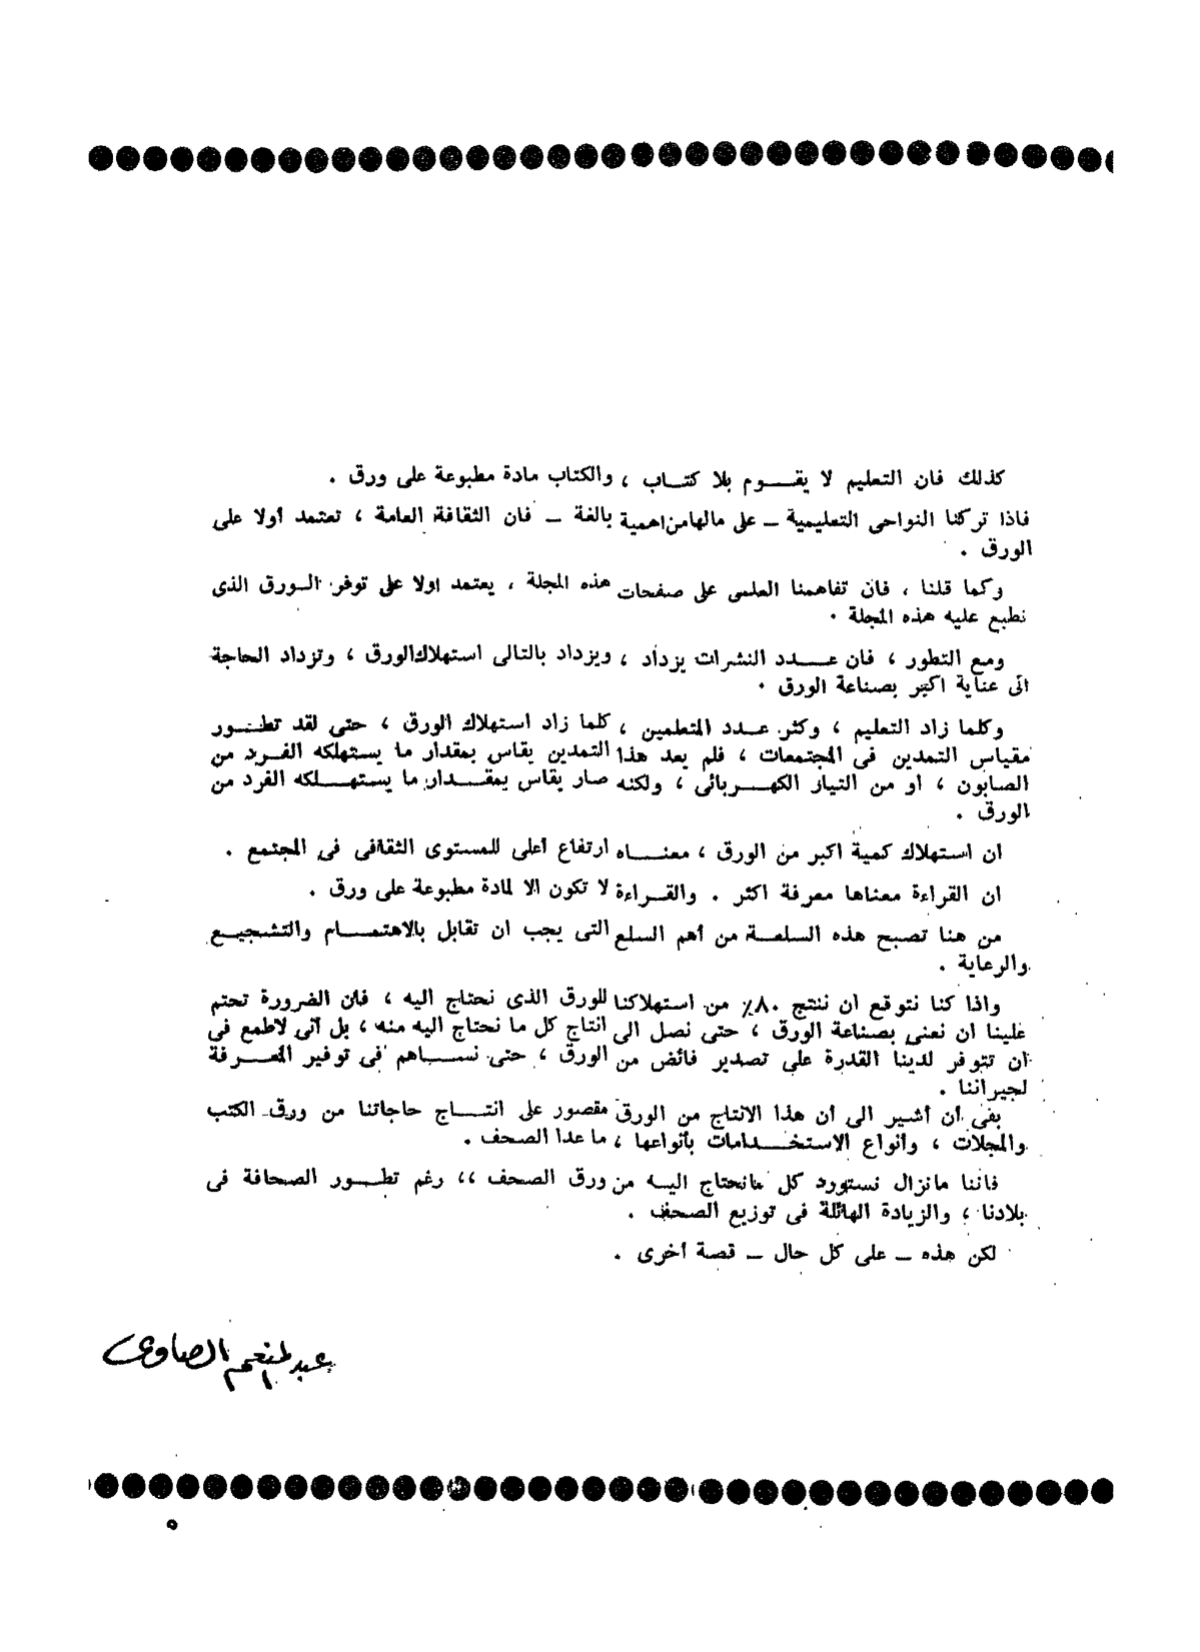 كذلك فان التعليم لا يقـــوم بلا كتــاب ، والكتاب مادة مطبوعة على ورق .
فاذا تركنا النواحى التعليمية ــ على مالها من اهمية بالغة ــ فان الثقافة العامة ، تعتمد أولا على
الورق .
وكما قلنا ، فان تفاهمنا العلمى على صفحات هذه المجلة ، يعتمد اولا على توفر الــورق الذى
نطبع عليه هذه المجلة .
ومع التطور ، فان عـــدد النشرات يزداد ، ويزداد بالتالى استهلاك الورق ، وتزداد الحاجة
الى عناية اكبر بصناعة الورق .
وكلما زاد التعليم ، وكثر عــدد المتعلمين ، كلما زاد استهلاك الورق ، حتى لقد تطــور
مقياس التمدين فى المجتمعات ، فلم يعد هذا التمدين يقاس بمقدار ما يستهلكه الفــرد من
الصابون ، او من التيار الكهـــربائى ، ولكنه صار يقاس بمقــدار ما يستهـــلكه الفرد من
الورق .
ان استهلاك كمية اكبر من الورق ، معنــاه ارتفاع أعلى للمستوى الثقافى فى المجتمع .
ان القراءة معناها معرفة اكثر . والقــراءة لا تكون الا لمادة مطبوعة على ورق .
من هنا تصبح هذه السلعــة من أهم السلع التى يجب ان تقابل بالاهتمــام والتشجيــع
والرعاية .
واذا كنا نتوقع ان ننتج ٨٠٪ من استهلاكنا للورق الذى نحتاج اليه ، فان الضرورة تحتم
علينا ان نعنى بصناعة الورق ، حتى نصل الى انتاج كل ما نحتاج اليه منه ، بل انى لاطمع فى
ان تتوفر لدينا القدرة على تصدير فائض من الورق ، حتى نســاهم فى توفير المعــرفة
لجيراننا .
بقى أن أشير الى أن هذا الانتاج من الورق مقصور على انتــاج حاجاتنا من ورق الكتب
والمجلات ، وأنواع الاستخــدامات بأنواعها ، ما عدا الصحف .
فاننا مانزال نستورد كل مانحتاج اليــه من ورق الصحف ،، رغم تطــور الصحافة فى
بلادنا ، والزيادة الهائلة فى توزيع الصحف .
لكن هذه ــ على كل حال ــ قصة أخرى .
عبد المنعم الصاوى
٥